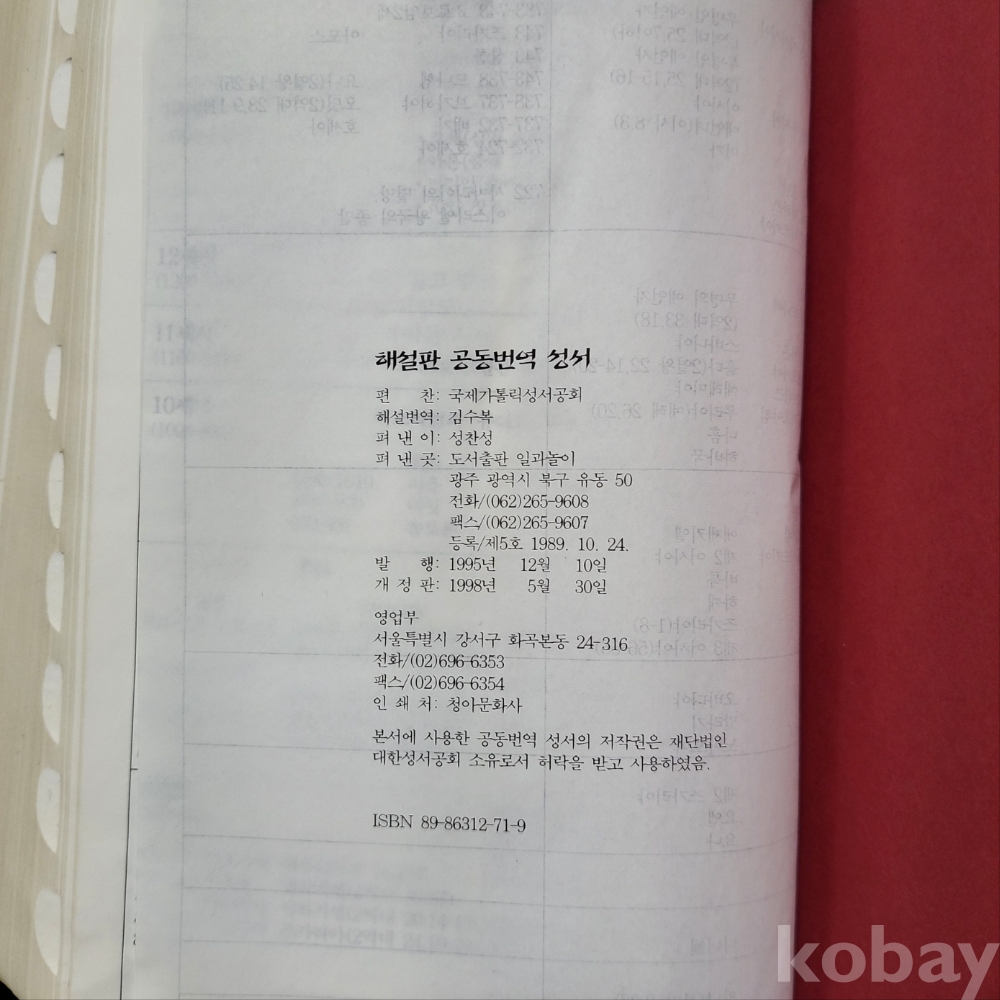 해설판 공동번역 성서
편 찬: 국제가톨릭성서공회
해설번역: 김수복
펴 낸 이: 성찬성
펴 낸 곳: 도서출판 일과놀이
광주 광역시 북구 유동 50
전화/(062)265-9608
팩스/(062)265-9607
등록/제5호 1989. 10. 24.
발 행: 1995년 12월 10일
개 정 판: 1998년 5월 30일
영업부
서울특별시 강서구 화곡본동 24-316
전화/(02)696-6353
팩스/(02)696-6354
인 쇄 처: 청아문화사
본서에 사용한 공동번역 성서의 저작권은 재단법인
대한성서공회 소유로서 허락을 받고 사용하였음.
ISBN 89-86312-71-9
kobay